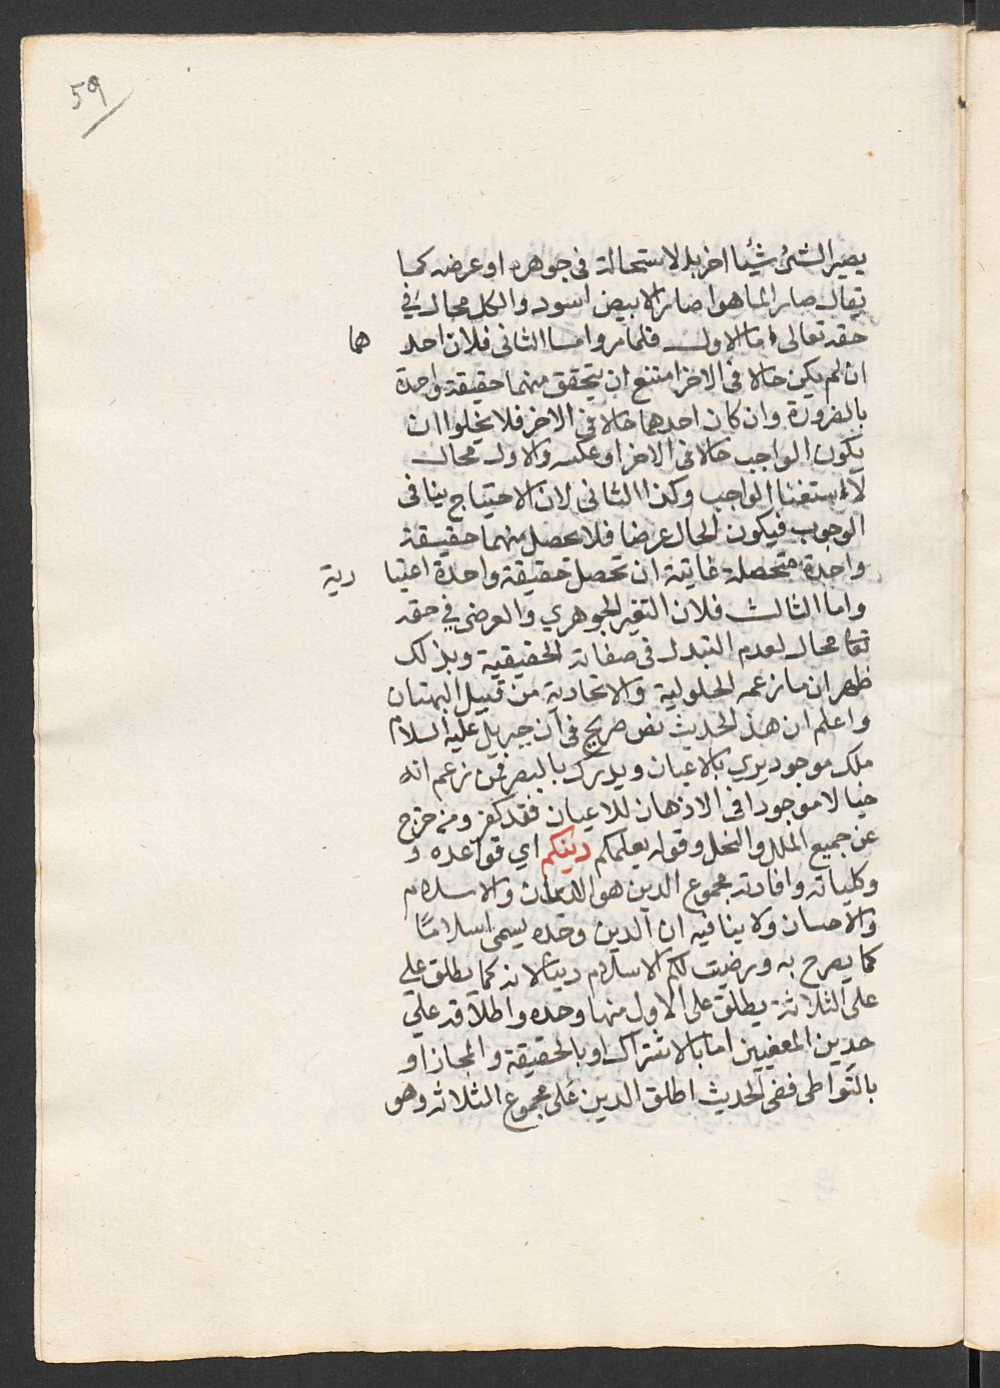 59
يصير الشئ شيئا اخر بلا استحالة في جوهره او عرضه كما
يقال صار الماء هوا صار الابيض اسود والكل محال في
حقه تعالى اما الاول فلما مر واما الثاني فلان احد هما
ان لم يكن حالا في الاخر امتنع ان يتحقق منهما حقيقة واحدة
بالضرورة وان كان احدهما حالا في الاخر فلا يخلوا ان
يكون الواجب حالا في الاخر او عكسه والاول محال
لاستغنا الواجب وكذا الثاني لان الاحتياج ينافى
الوجوب فيكون الحال عرضا فلا يحصل منهما حقيقة
واحدة متحصلة غايته ان تحصل حقيقة واحدة اعتبا رية
واما الثالث فلان التغير الجوهري والعرضى في حقه
تعا محال لعدم التبدل في صفاته الحقيقية وبذلك
ظهر ان ما زعمه الحلولية والاتحادية من قبيل البهتان
واعلم ان هذ الحديث نص صريح في ان جبريل عليه السلام
ملك موجود يري بالاعيان ويدرك بالبصر فمن زعم انه
خيالا موجودا في الاذهان للاعيان فقد كفر ومنه خرج
عن جميع الملل والنحل وقوله يعلمكم دينكم اي قواعده و
وكلياته وافادته مجموع الدين هو الايمان والاسلام
والاحسان ولا ينافيه ان الدين وحده يسمى اسلامًا
كما يصرح به ورضيت لكم الاسلام دينا لانه كما يطلق علي
على الثلاثة يطلق على الاول منها وحده واطلاقه علي
هدين المعنيين اما بالاشتراك او بالحقيقة والمجاز او
بالتواطى ففي الحديث اطلق الدين على مجموع الثلاثه وهو